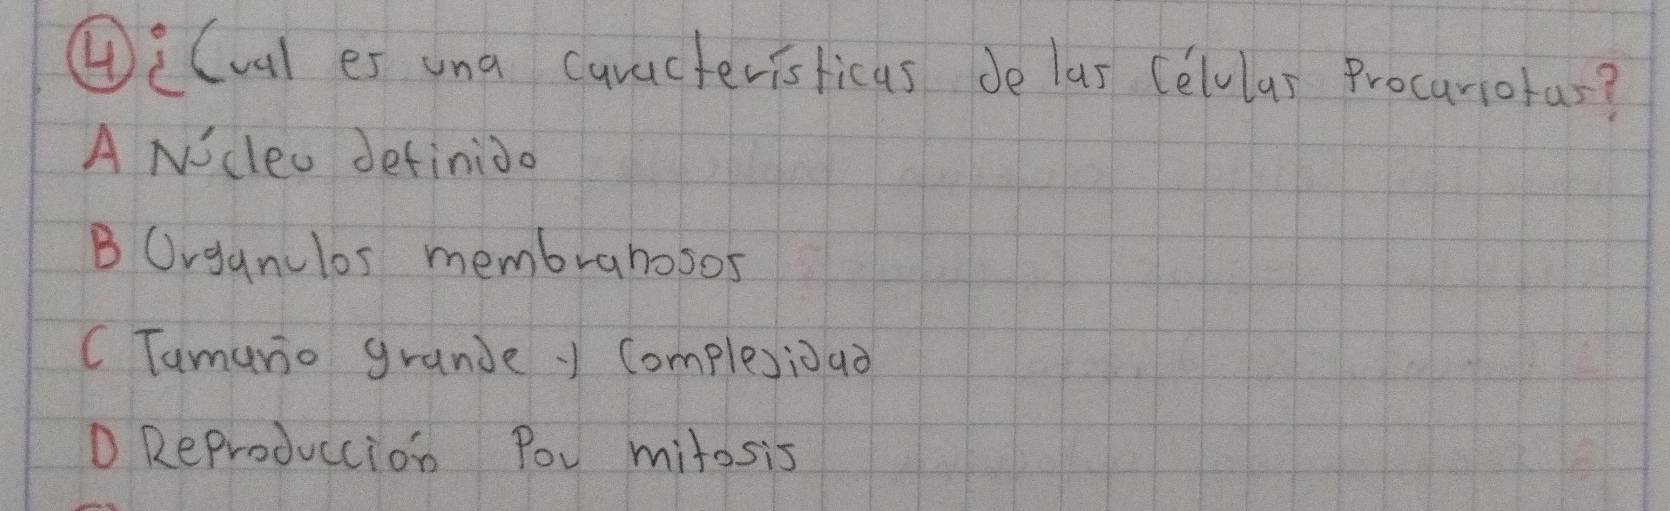 4 ¿Cual es una características de las Células Procariotas?
A Núcleo definido
B Organulos membranosos
C Tamaño grande y Complejidad
D Reproducción Por mitosis